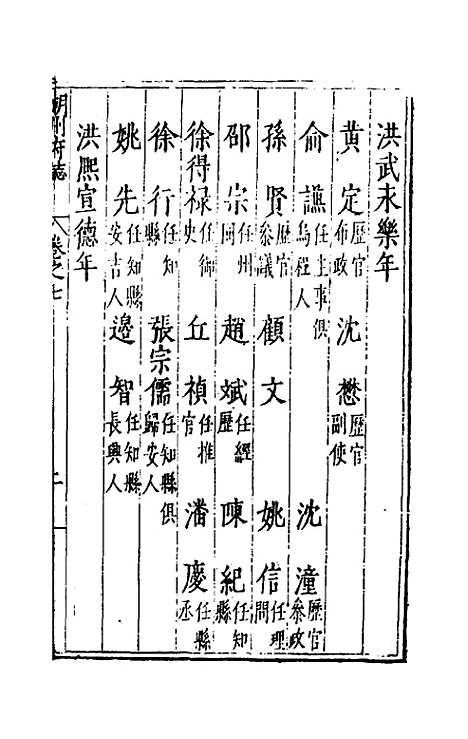 洪武永樂年
黃定歷官布政 沈懋歷官副使
俞謙任主事俱烏程人 沈潼歷官參政
孫賢歷官參議 顧文 姚信任理問
邵宗任州同 趙斌任經歷 陳紀任知縣
徐得祿任御史 丘禎任推官 潘慶任縣丞
徐行任知縣 張宗儒任知縣俱歸安人
姚先任知縣安吉人 邊智任知縣長興人
洪熙宣德年
湖州府志 卷之七 二